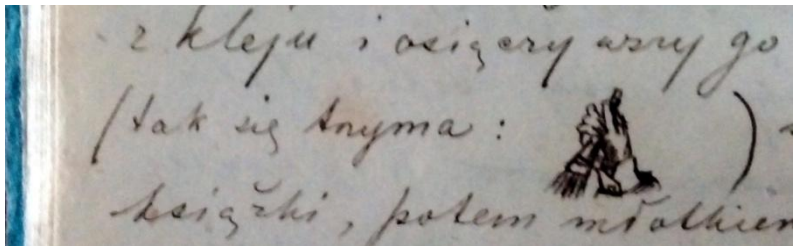 z kleju i osiączywszy go
(tak się trzyma: )
książki, potem młotkiem